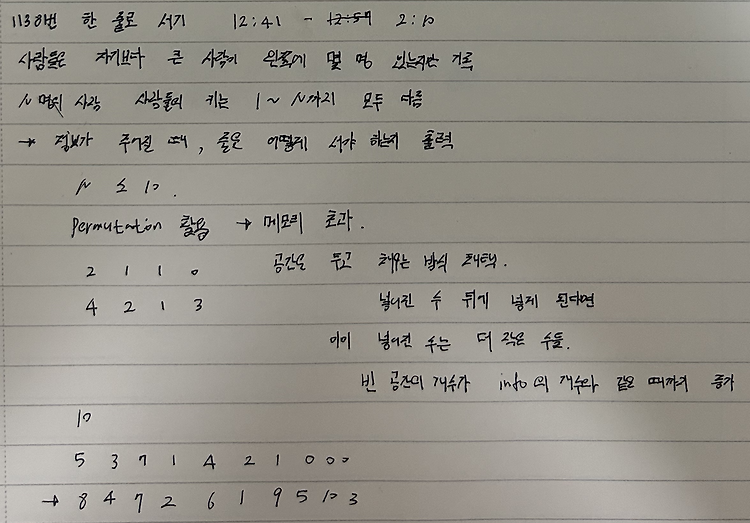 1138번 한 줄로 서기 12:41 - 12:59 2:10
사람들은 자기보다 큰 사람이 왼쪽에 몇 명 있는지만 기록
N 명의 사람 사람들의 키는 1 ~ N까지 모두 다름
→ 정보가 주어질 때, 줄은 어떻게 서야 하는지 출력
N ≤ 10.
Permutation 활용 → 메모리 초과.
2 1 1 0 공간을 두고 채우는 방식 채택.
4 2 1 3 넣어진 수 뒤에 넣게 된다면
이미 넣어진 수는 더 작은 수들.
빈 공간의 개수가 info의 개수와 같을 때까지 증가
10
5 3 7 1 4 2 1 0 0 0
→ 8 4 7 2 6 1 9 5 10 3